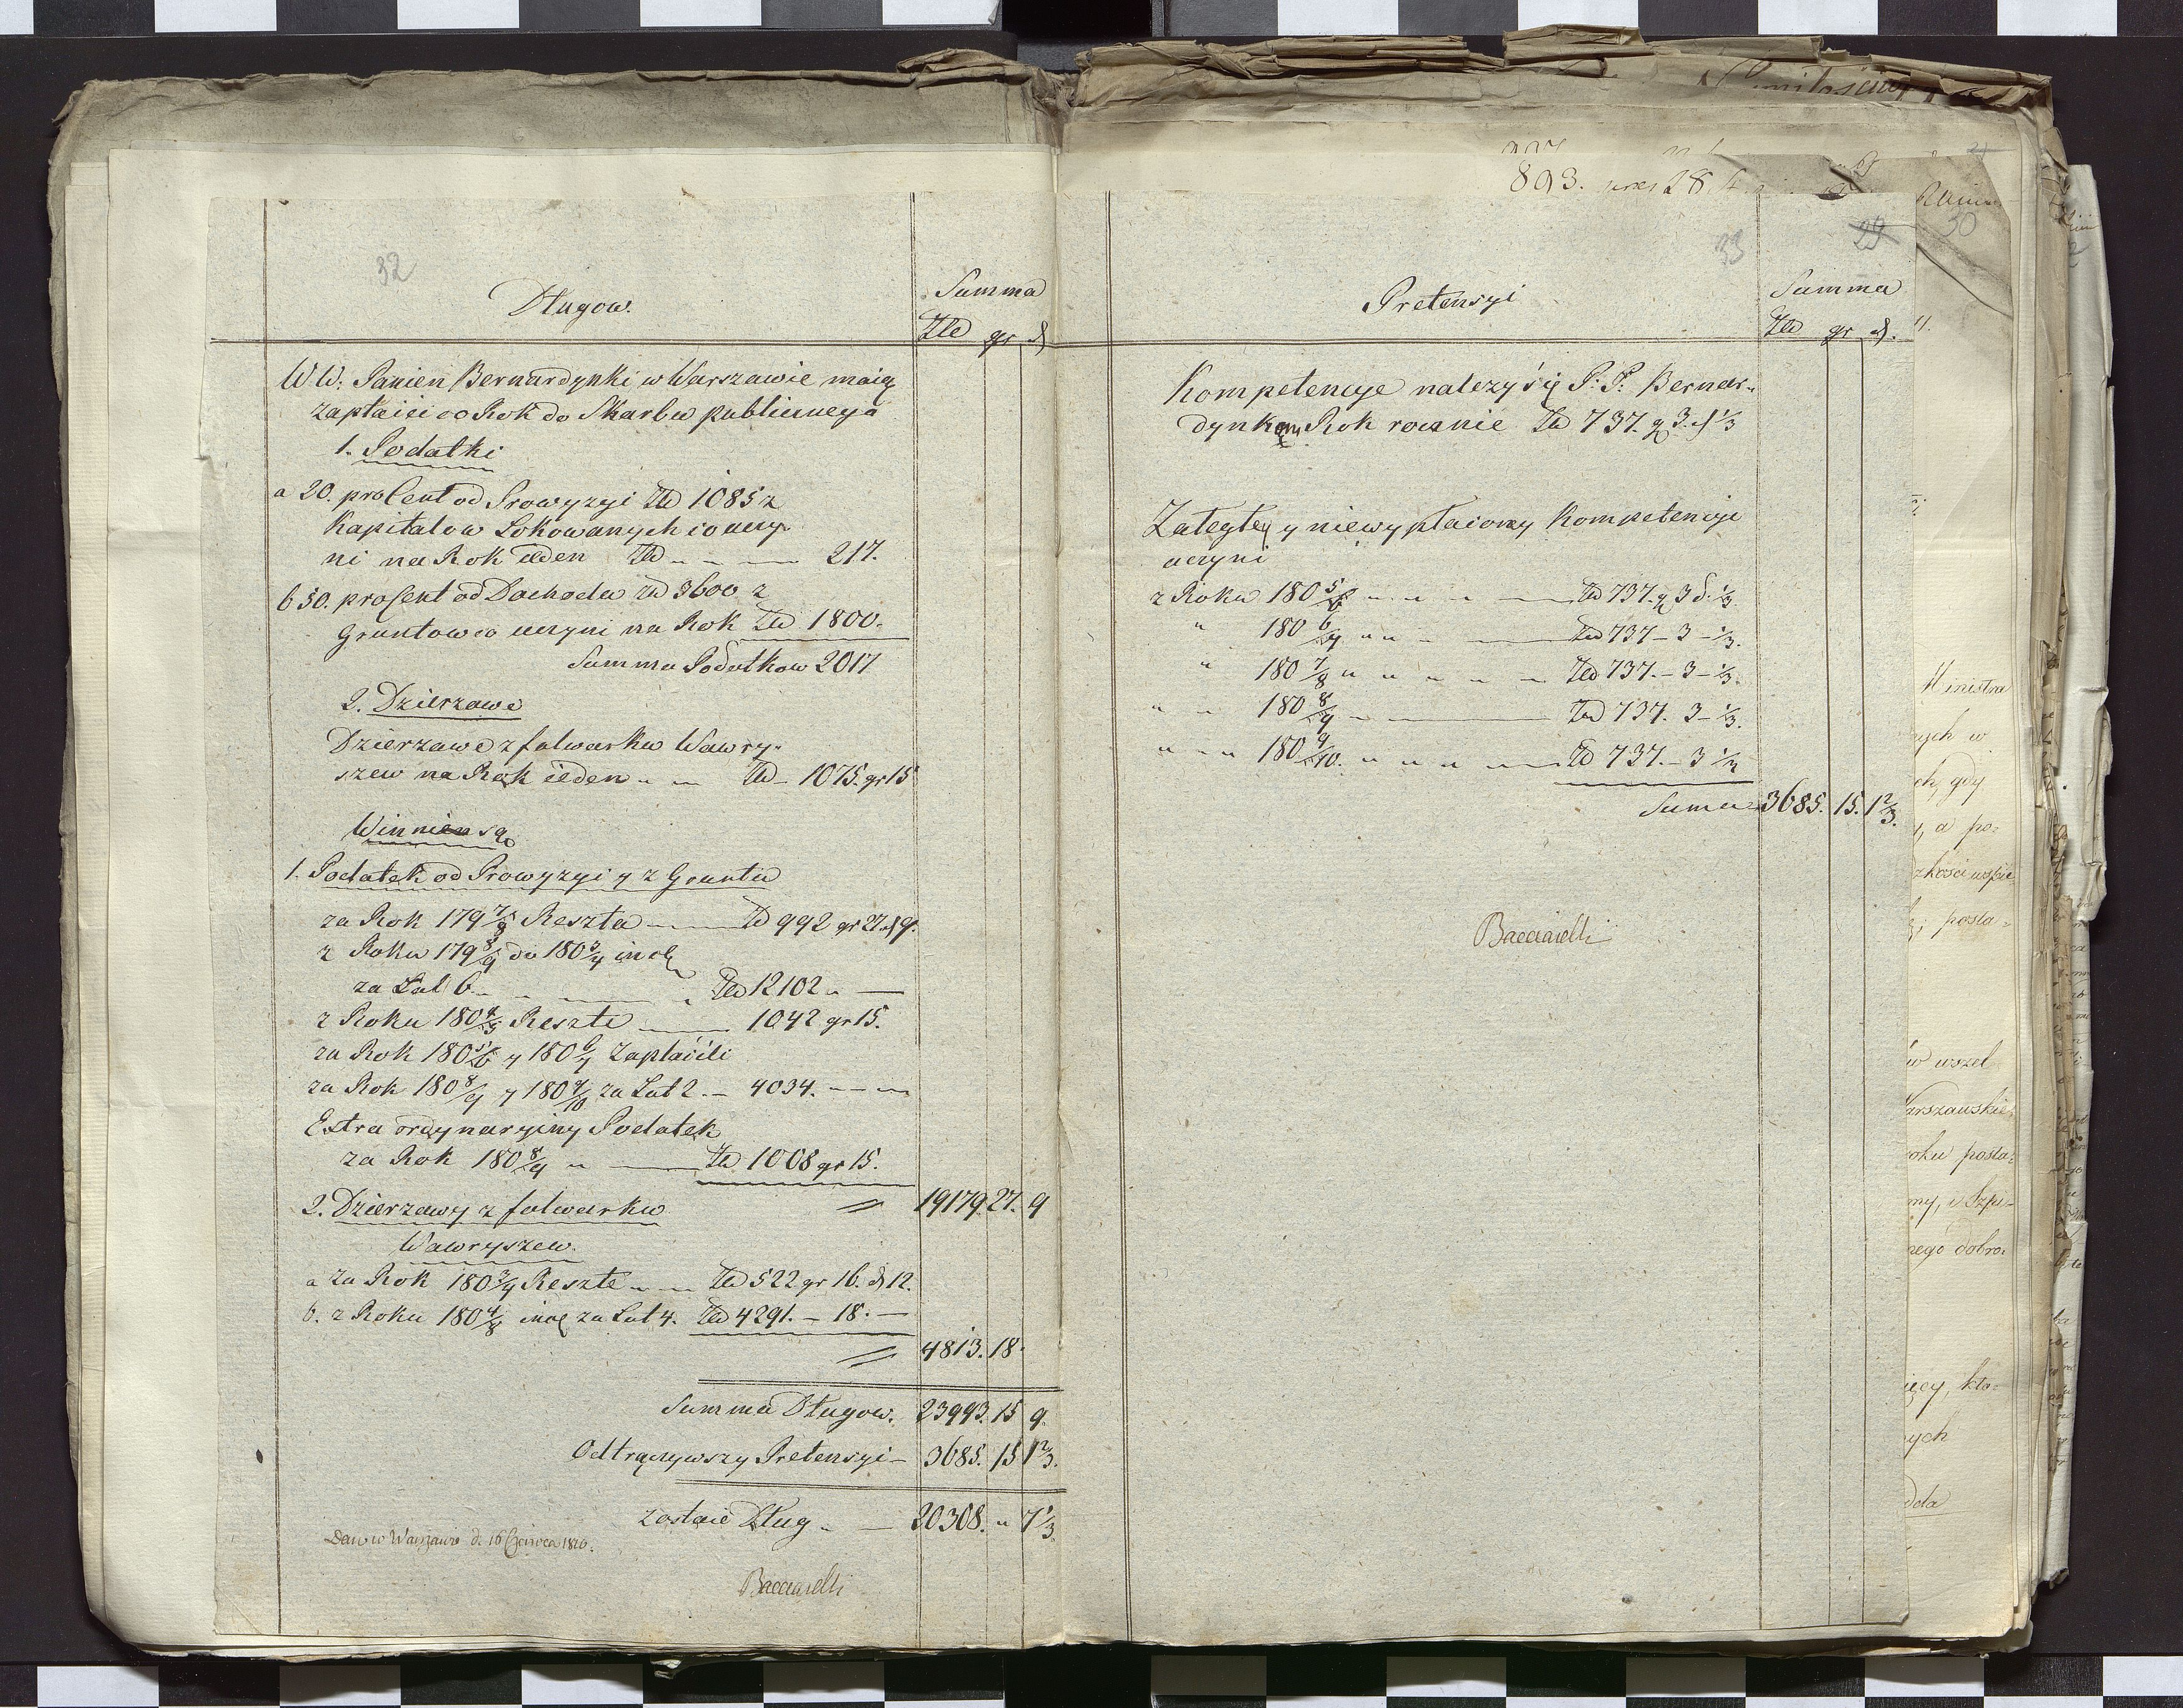 32
Długow.
Summa
Złł gr ₰
WW: Panien Bernardynki w Warszawie maią
zapłacić co Rok do Skarbu publicznego
1. Podatki
a 20. proCent od Prowyzyi Złł 1085 z
Kapitałow Lokowanych co uczy-
ni na Rok ieden Złł " - - 217.
b 50. proCent od Dochodu zł 3600 z
Gruntow co uczyni na Rok Złł 1800.
Summa Podatkow 2017
2. Dzierzawe
Dzierzawe z folwarku Wawry-
szew na Rok ieden " - Złł - 1075. gr 15
Winnien są
1. Podatek od Prowyzyi y z Gruntu
za Rok 179 7/8 Reszta - Zł 992 gr 27 ₰ 9.
z Roku 179 8/9 do 180 3/4 incl
za Lat 6 - - Złł 12102 " -
z Roku 180 4/5 Reszte - 1042 gr 15.
za Rok 180 5/6 y 180 6/7 Zapłaciili
za Rok 180 8/9 y 180 9/10 za Lat 2. - 4034. - -
Extra ordynaryiny Podatek
za Rok 180 8/9 " - Złł 1008 gr 15.
= 19179. 27. 9
2. Dzierzawy z folwarku
Wawryszew.
a za Rok 180 3/4 Reszte " - Złł 522 gr 16. ₰ 12.
b. z Roku 180 4/8 incl za Lat 4. Złł 4291. - 18. -
= 4813. 18.
Summa Długow. 23993. 15 9.
Odtrączywszy Pretensyi - 3685. 15 1 2/3.
zostaie Dług " - 20308. " 7 1/3.
Dan w Warszawie d. 16 Czerwca 1810.
Bacciarelli
893.
28
33
29
30
Pretensyi
Summa
Złł gr ₰.
Kompetencye nalezy się P: P: Bernar-
dynkom Rok rocznie Złł 737. g 3. ₰ 1/3
Zategłey y niewypłaconey Kompetencye
uczyni
z Roku 180 5/6 " " " - Złł 737. g 3 ₰. 1/3.
" 180 6/7 " " - Złł 737 - 3 - 1/3.
" 180 7/8 " " " - Złł 737. - 3 - 1/3.
" " 180 8/9 - - Złł 737. 3 - 1/3.
" " " 180 9/10. " " " - Zł 737. - 3 1/3
Suma 3685. 15. 1 2/3.
Bacciarelli
Ministra
ych w
ch, gdy
a po-
posta-
w wszel
Warszawskie
roku posta-
nego dobro
kto-
ych